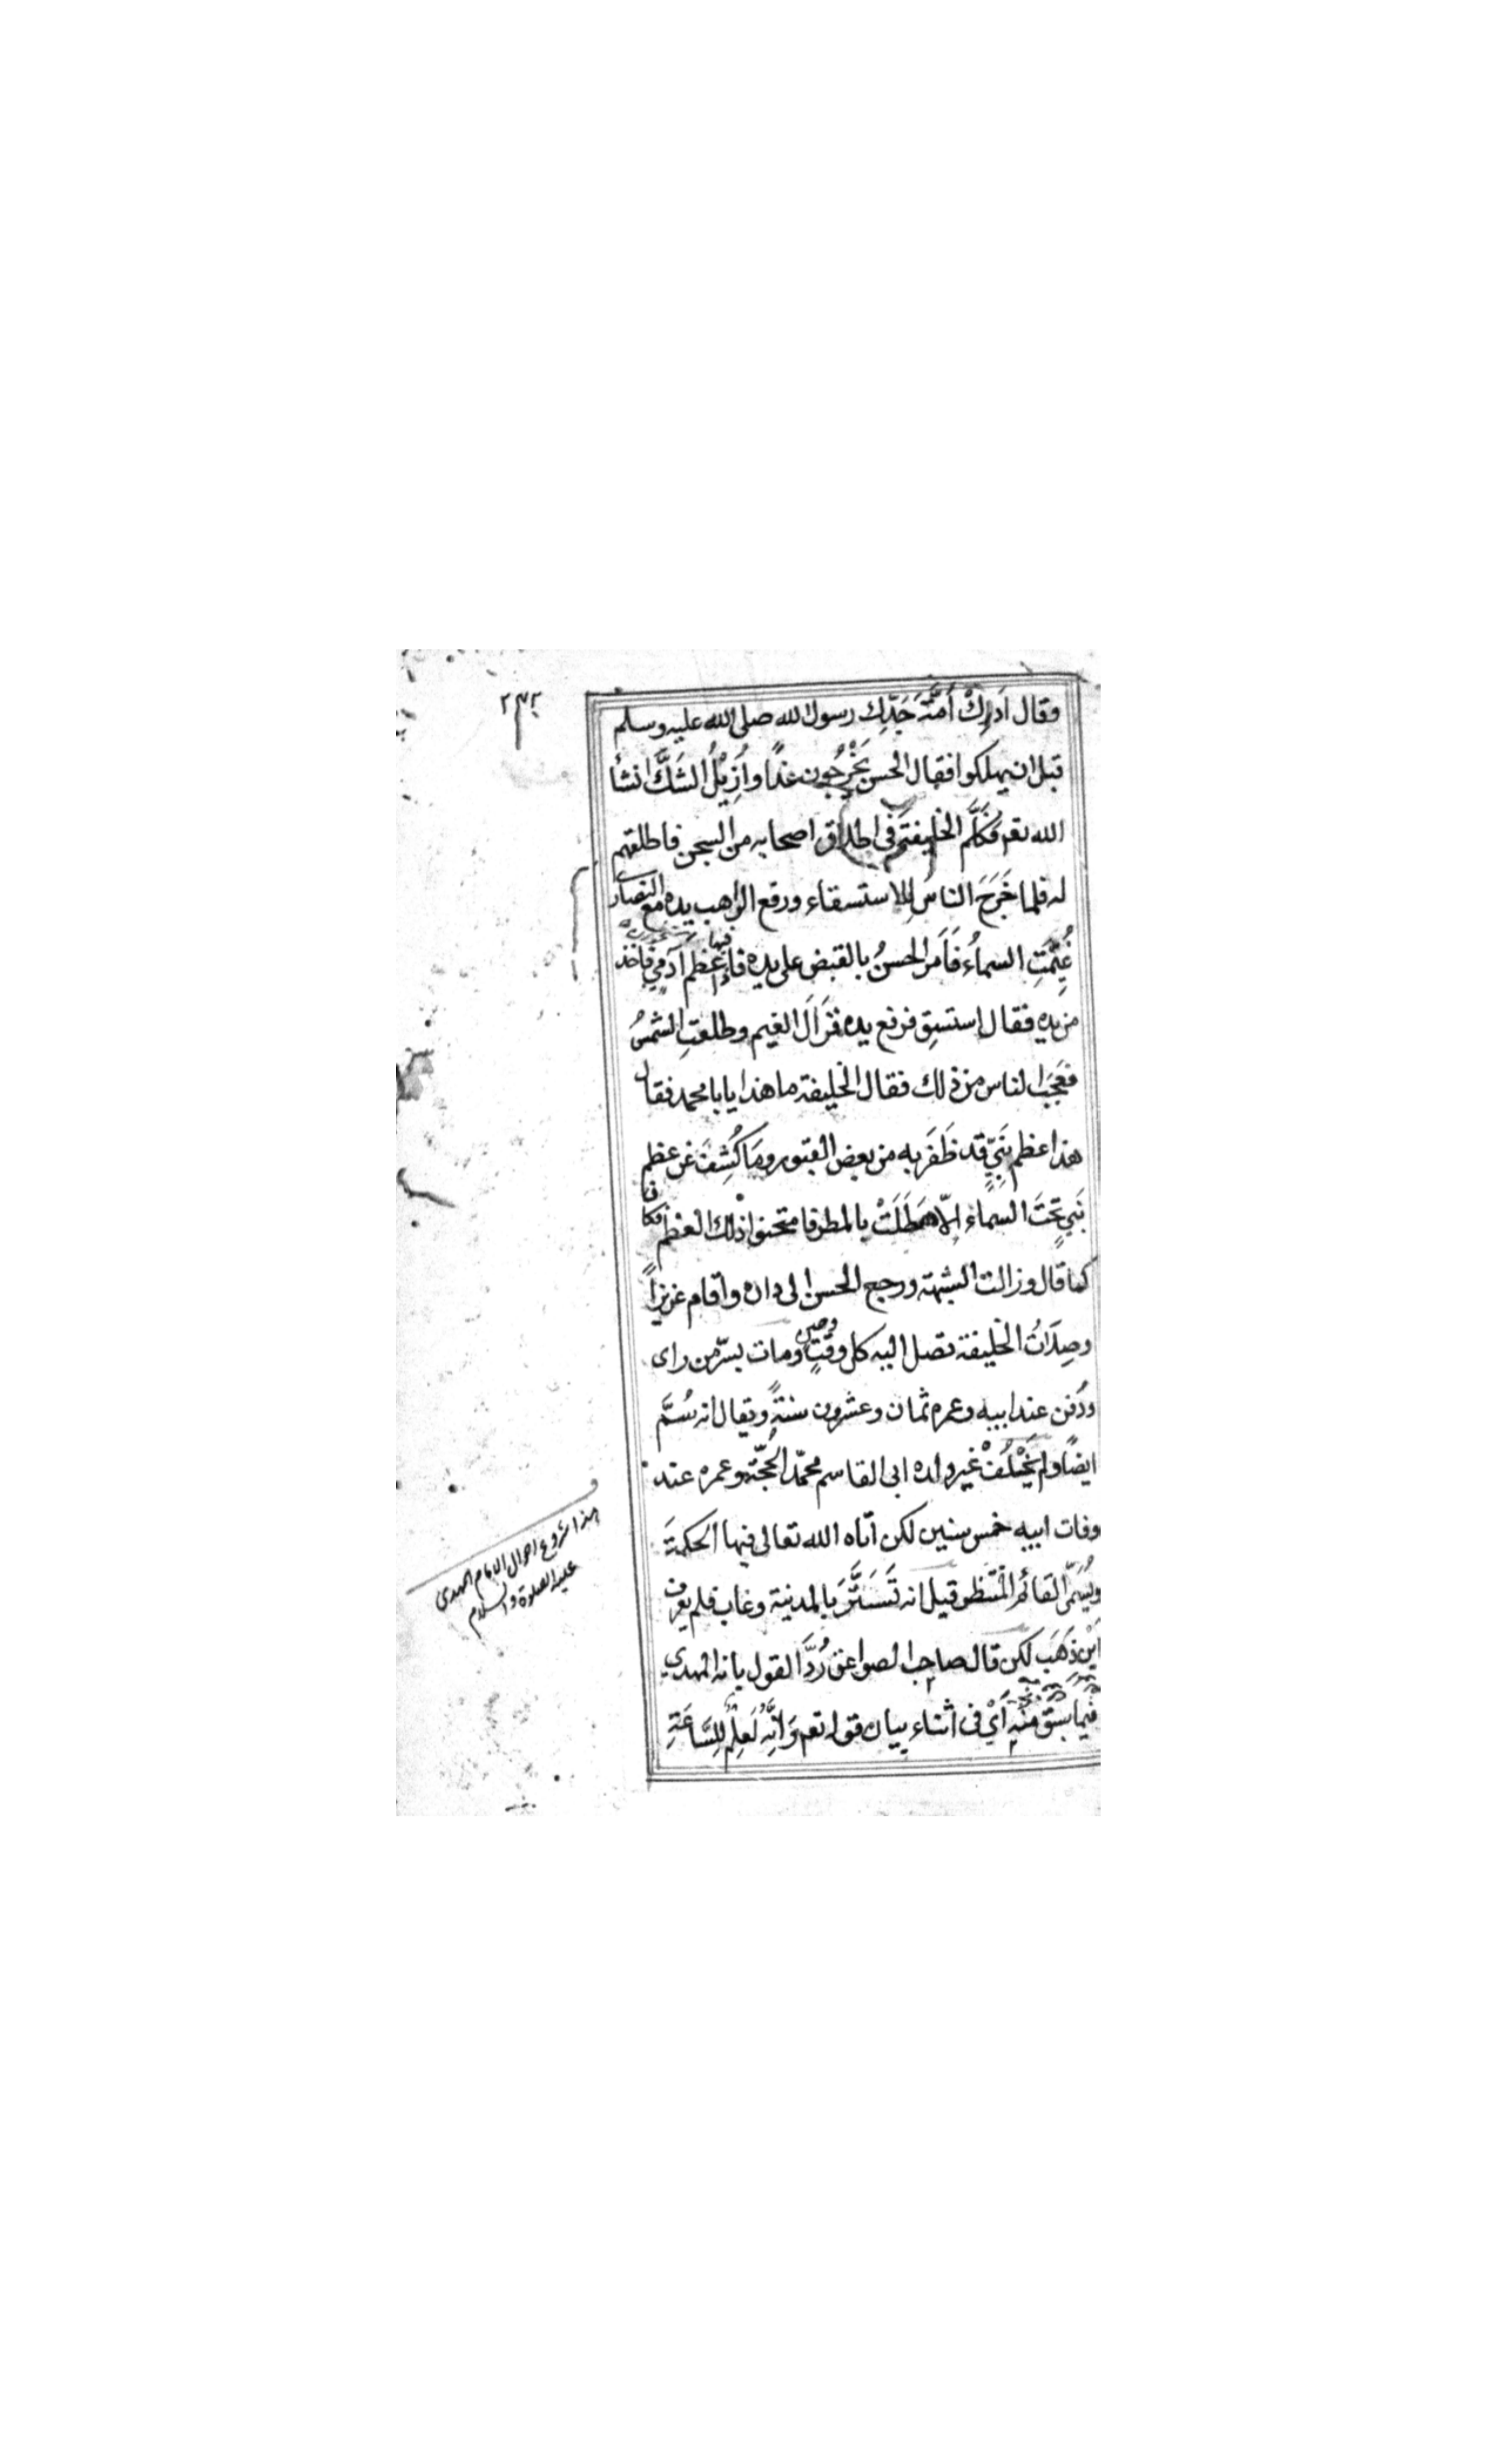 ٢٣٢
وقال اَدرِكْ اُمَّةَ جَدِّك رسول الله صلى الله عليه وسلم
قبل ان يهلكوا فقال الحسن يَخْرُجُون غدًا واُزِيْلُ الشَكَّ انشأ
الله تعم فَكَلَّمَ الخليفةَ فى اطلاق اصحابه من السجن فاطلقهم
له فلما خَرَجَ الناسُ للاستسقاء ورفع الراهب يده مع النصارى
غُيِّمَتِ السماءُ فَاَمَرَ الحسنُ بالقبض على يده فاذا فيها عظم آدمي فاخذ
من يده فقال استسقِ فرفع يده فزَالَ الغيم وطلعتِ الشمسُ
فعَجَبَ الناس من ذلك فقال الخليفة ما هذا يا با محمد فقال
هذا عظم نَبِيّ قد ظَفَرَ به من بعض القبور وما كُشِفَ عن عظم
نَبِيٍ تحتَ السماء الّا هَطَلَتْ بالمطر فامتحنوا ذلك العظم فكا
كما قال وزالت الشبهة ورجع الحسن الى داره واقام عزيزاً
وصِلَاتُ الخليفة تصل اليه كل وقتٍ وحين ومات بسرّ من راى
ودُفن عند ابيه وعمره ثمان وعشرون سنةً ويقال انه سُمَّ
ايضًا ولم يَخْلُفْ غير ولده ابى القاسم محمّد الحُجّة وعمره عند
وفات ابيه خمس سنين لكن اتاه الله تعالى فيها الحكمةَ
ويُسَمّى القائم المنتظر قيل انه تَسَتَّرَ بالمدينة وغاب فلم يعرف
اَيْنَ ذَهَب لكن قال صاحب الصواعق رُدَّ القول بانه المهدي
فيما سبق منه اَيْ فى اثناء بيان قوله تعم وَاِنَّهُ لَعِلْمٌ لِلسَّاعَةِ
هذا شروع احوال الامام المهدى
عليه الصلوة والسلام